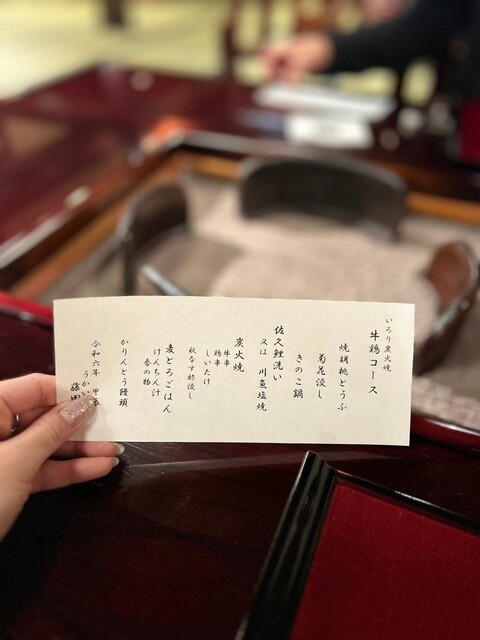 いろり炭火焼
牛鶏コース
焼胡桃どうふ
菊花浸し
きのこ鍋
佐久鯉洗い
又は 川魚塩焼
炭火焼
牛串
鶏串
しいたけ
秋なす酢浸し
麦とろごはん
けんちん汁
香の物
かりんとう饅頭
令和六年 甲辰
うかい